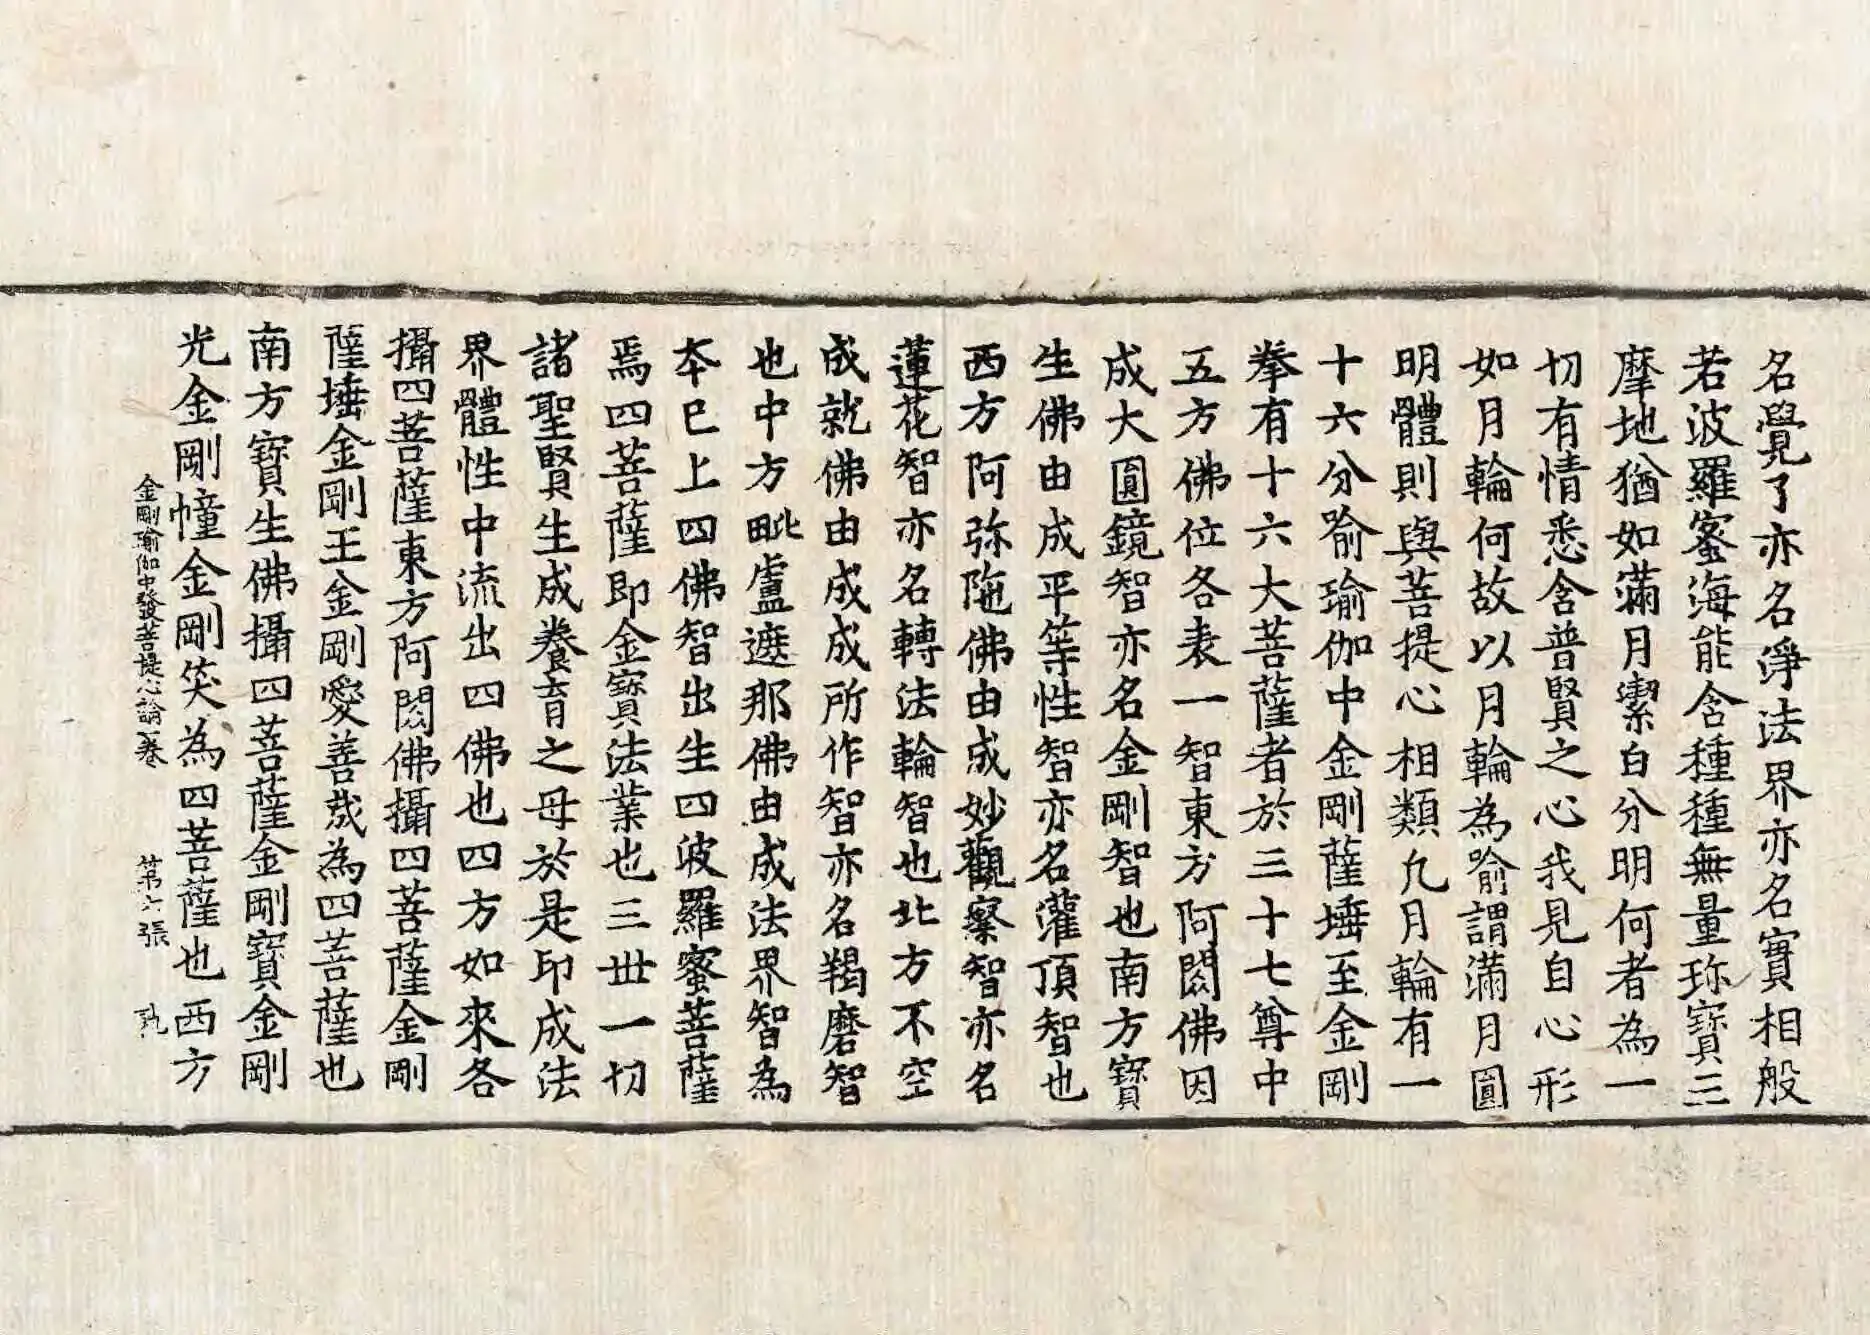 名覺了亦名淨法界亦名實相般
若波羅蜜海能含種種無量珎寶三
摩地猶如滿月潔白分明何者為一
切有情悉含普賢之心我見自心形
如月輪何故以月輪為喻謂滿月圓
明體則與菩提心相類凢月輪有一
十六分喻瑜伽中金剛薩埵至金剛
拳有十六大菩薩者於三十七尊中
五方佛位各表一智東方阿閦佛因
成大圓鏡智亦名金剛智也南方寶
生佛由成平等性智亦名灌頂智也
西方阿弥陁佛由成妙觀察智亦名
蓮花智亦名轉法輪智也北方不空
成就佛由成成所作智亦名羯磨智
也中方毗盧遮那佛由成法界智為
夲已上四佛智出生四波羅蜜菩薩
焉四菩薩即金寶法業也三世一切
諸聖賢生成養育之母於是印成法
界體性中流出四佛也四方如來各
攝四菩薩東方阿閦佛攝四菩薩金剛
薩埵金剛王金剛愛善哉為四菩薩也
南方寶生佛攝四菩薩金剛寶金剛
光金剛幢金剛笑為四菩薩也西方
金剛瑜伽中發菩提心論一卷 第六張 孰